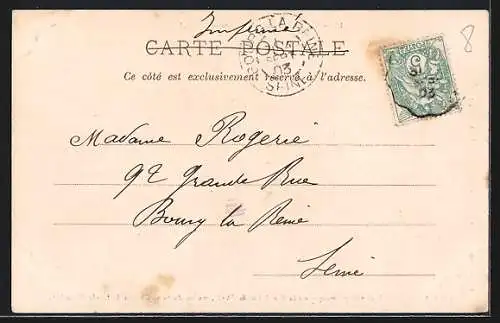 Imprimé
CARTE POSTALE
Ce côté est exclusivement réservé à l'adresse.
BOURG LA REINE
03
SEINE
8
Madame Rogerie
92 Grande Rue
Bourg la Reine
Seine